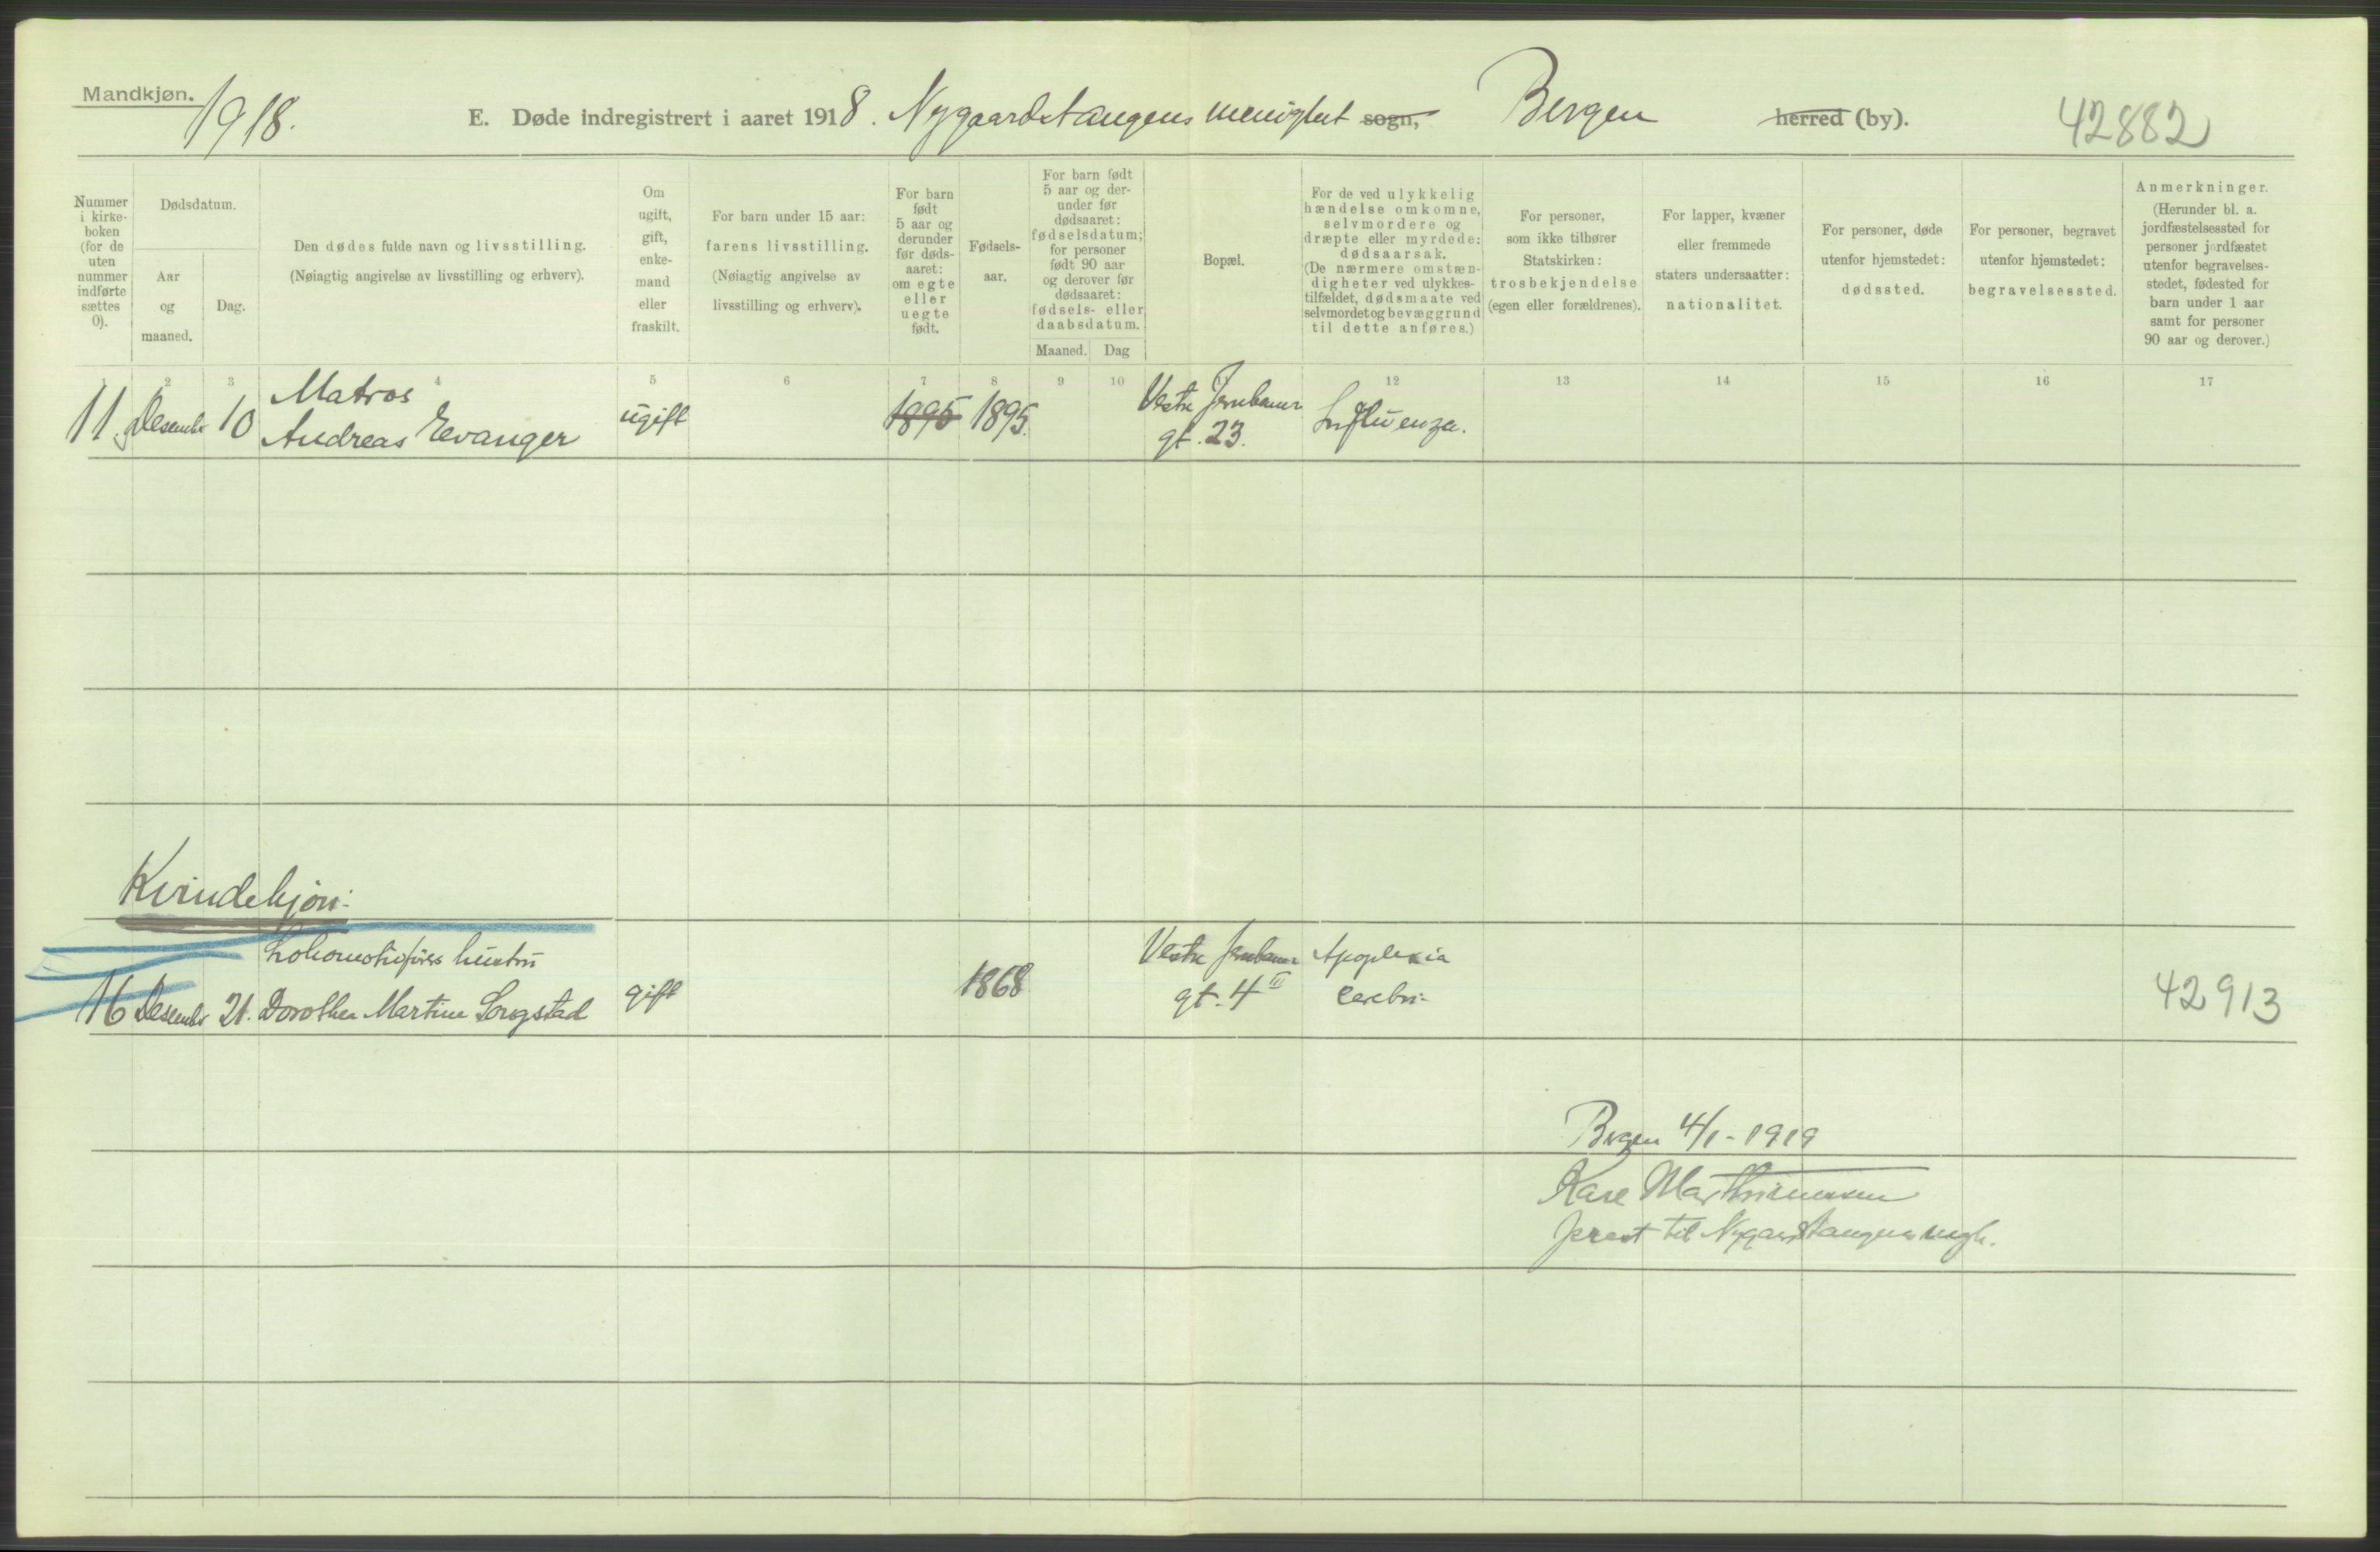 Mandkjøn.
1918.
E. Døde indregistrert i aaret 1918. Nygaardstangens menighet sogn, Bergen herred (by).
42882
Nummer
i kirke-
boken
(for de
uten
nummer
indførte
sættes
0).
Dødsdatum.
Aar
og
maaned.
Dag.
Den dødes fulde navn og livsstilling.
(Nøiagtig angivelse av livsstilling og erhverv).
Om
ugift,
gift,
enke-
mand
eller
fraskilt.
For barn under 15 aar:
farens livsstilling.
(Nøiagtig angivelse av
livsstilling og erhverv).
For barn
født
5 aar og
derunder
før døds-
aaret:
om egte
eller
uegte
født.
Fødsels-
aar.
For barn født
5 aar og der-
under før
dødsaaret:
fødselsdatum;
for personer
født 90 aar
og derover før
dødsaaret:
fødsels- eller
daabsdatum.
Maaned. Dag
Bopæl.
For de ved ulykkelig
hændelse omkomne,
selvmordere og
dræpte eller myrdede:
dødsaarsak.
(De nærmere omstæn-
digheter ved ulykkes-
tilfældet, dødsmaate ved
selvmordet og bevæggrund
til dette anføres.)
For personer,
som ikke tilhører
Statskirken:
trosbekjendelse
(egen eller forældrenes).
For lapper, kvæner
eller fremmede
staters undersaatter:
nationalitet.
For personer, døde
utenfor hjemstedet:
dødssted.
For personer, begravet
utenfor hjemstedet:
begravelsessted.
Anmerkninger.
(Herunder bl. a.
jordfæstelsessted for
personer jordfæstet
utenfor begravelses-
stedet, fødested for
barn under 1 aar
samt for personer
90 aar og derover.)
2 3 4 5 6 7 8 9 10 11 12 13 14 15 16 17
Matros Vestre Jernbaner
11. Desembr 10 Andreas Evanger ugift 1895 1895. gt. 23. Influenza.
Kvindekjøn:
Lokomotivførers hustru Vestre Jernbaner Apoplexia
16 Desembr 21. Dorothea Martine Sorgstad gift 1868 gt. 4 III cerebri- 42913
Bergen 4/1-1919
Kare Marthinussen
prest til Nygaardstangens mgh.